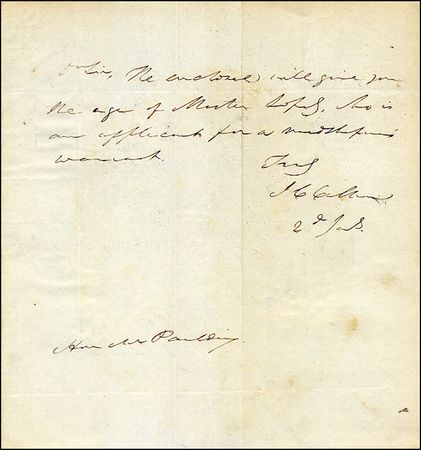 Dr Sir, The enclosed will give you
the age of Master who is
an applicant for a midshipmans
warrant.
Truly
J. C. Calhoun
2d Jan.
Hon Mr Paulding.